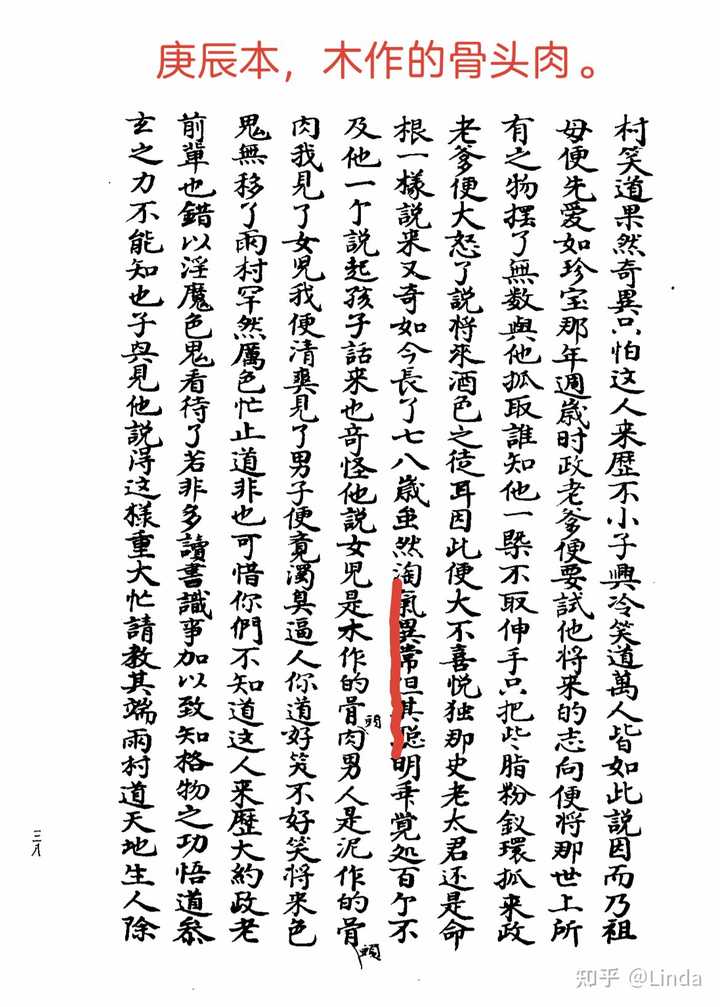 庚辰本，木作的骨头肉。
村笑道果然奇異只怕这人来歷不小子興冷笑道萬人皆如此説因而乃祖
母便先爱如珍宝那年週歲时政老爹便要試他将来的志向便將那世上所
有之物摆了無数與他抓取誰知他一槩不取伸手只把些脂粉釵環抓来政
老爹便大怒了説将來酒色之徒耳因此便大不喜悦独那史老太君还是命
根一樣説来又奇如今長了七八歲虽然淘氣異常但其聪明乖覚処百个不
及他一个説起孩子話来也奇怪他説女児是木作的骨頭肉男人是泥作的骨頭
肉我見了女児我便清爽見了男子便竟濁臭逼人你道好笑不好笑将来色
鬼無移了雨村罕然厲色忙止道非也可惜你們不知道这人来歷大約政老
前輩也錯以淫魔色鬼看待了若非多讀書識事加以致知格物之功悟道叅
玄之力不能知也子興見他説淂这樣重大忙請教其端雨村道天地生人除
三八
知乎 @Linda